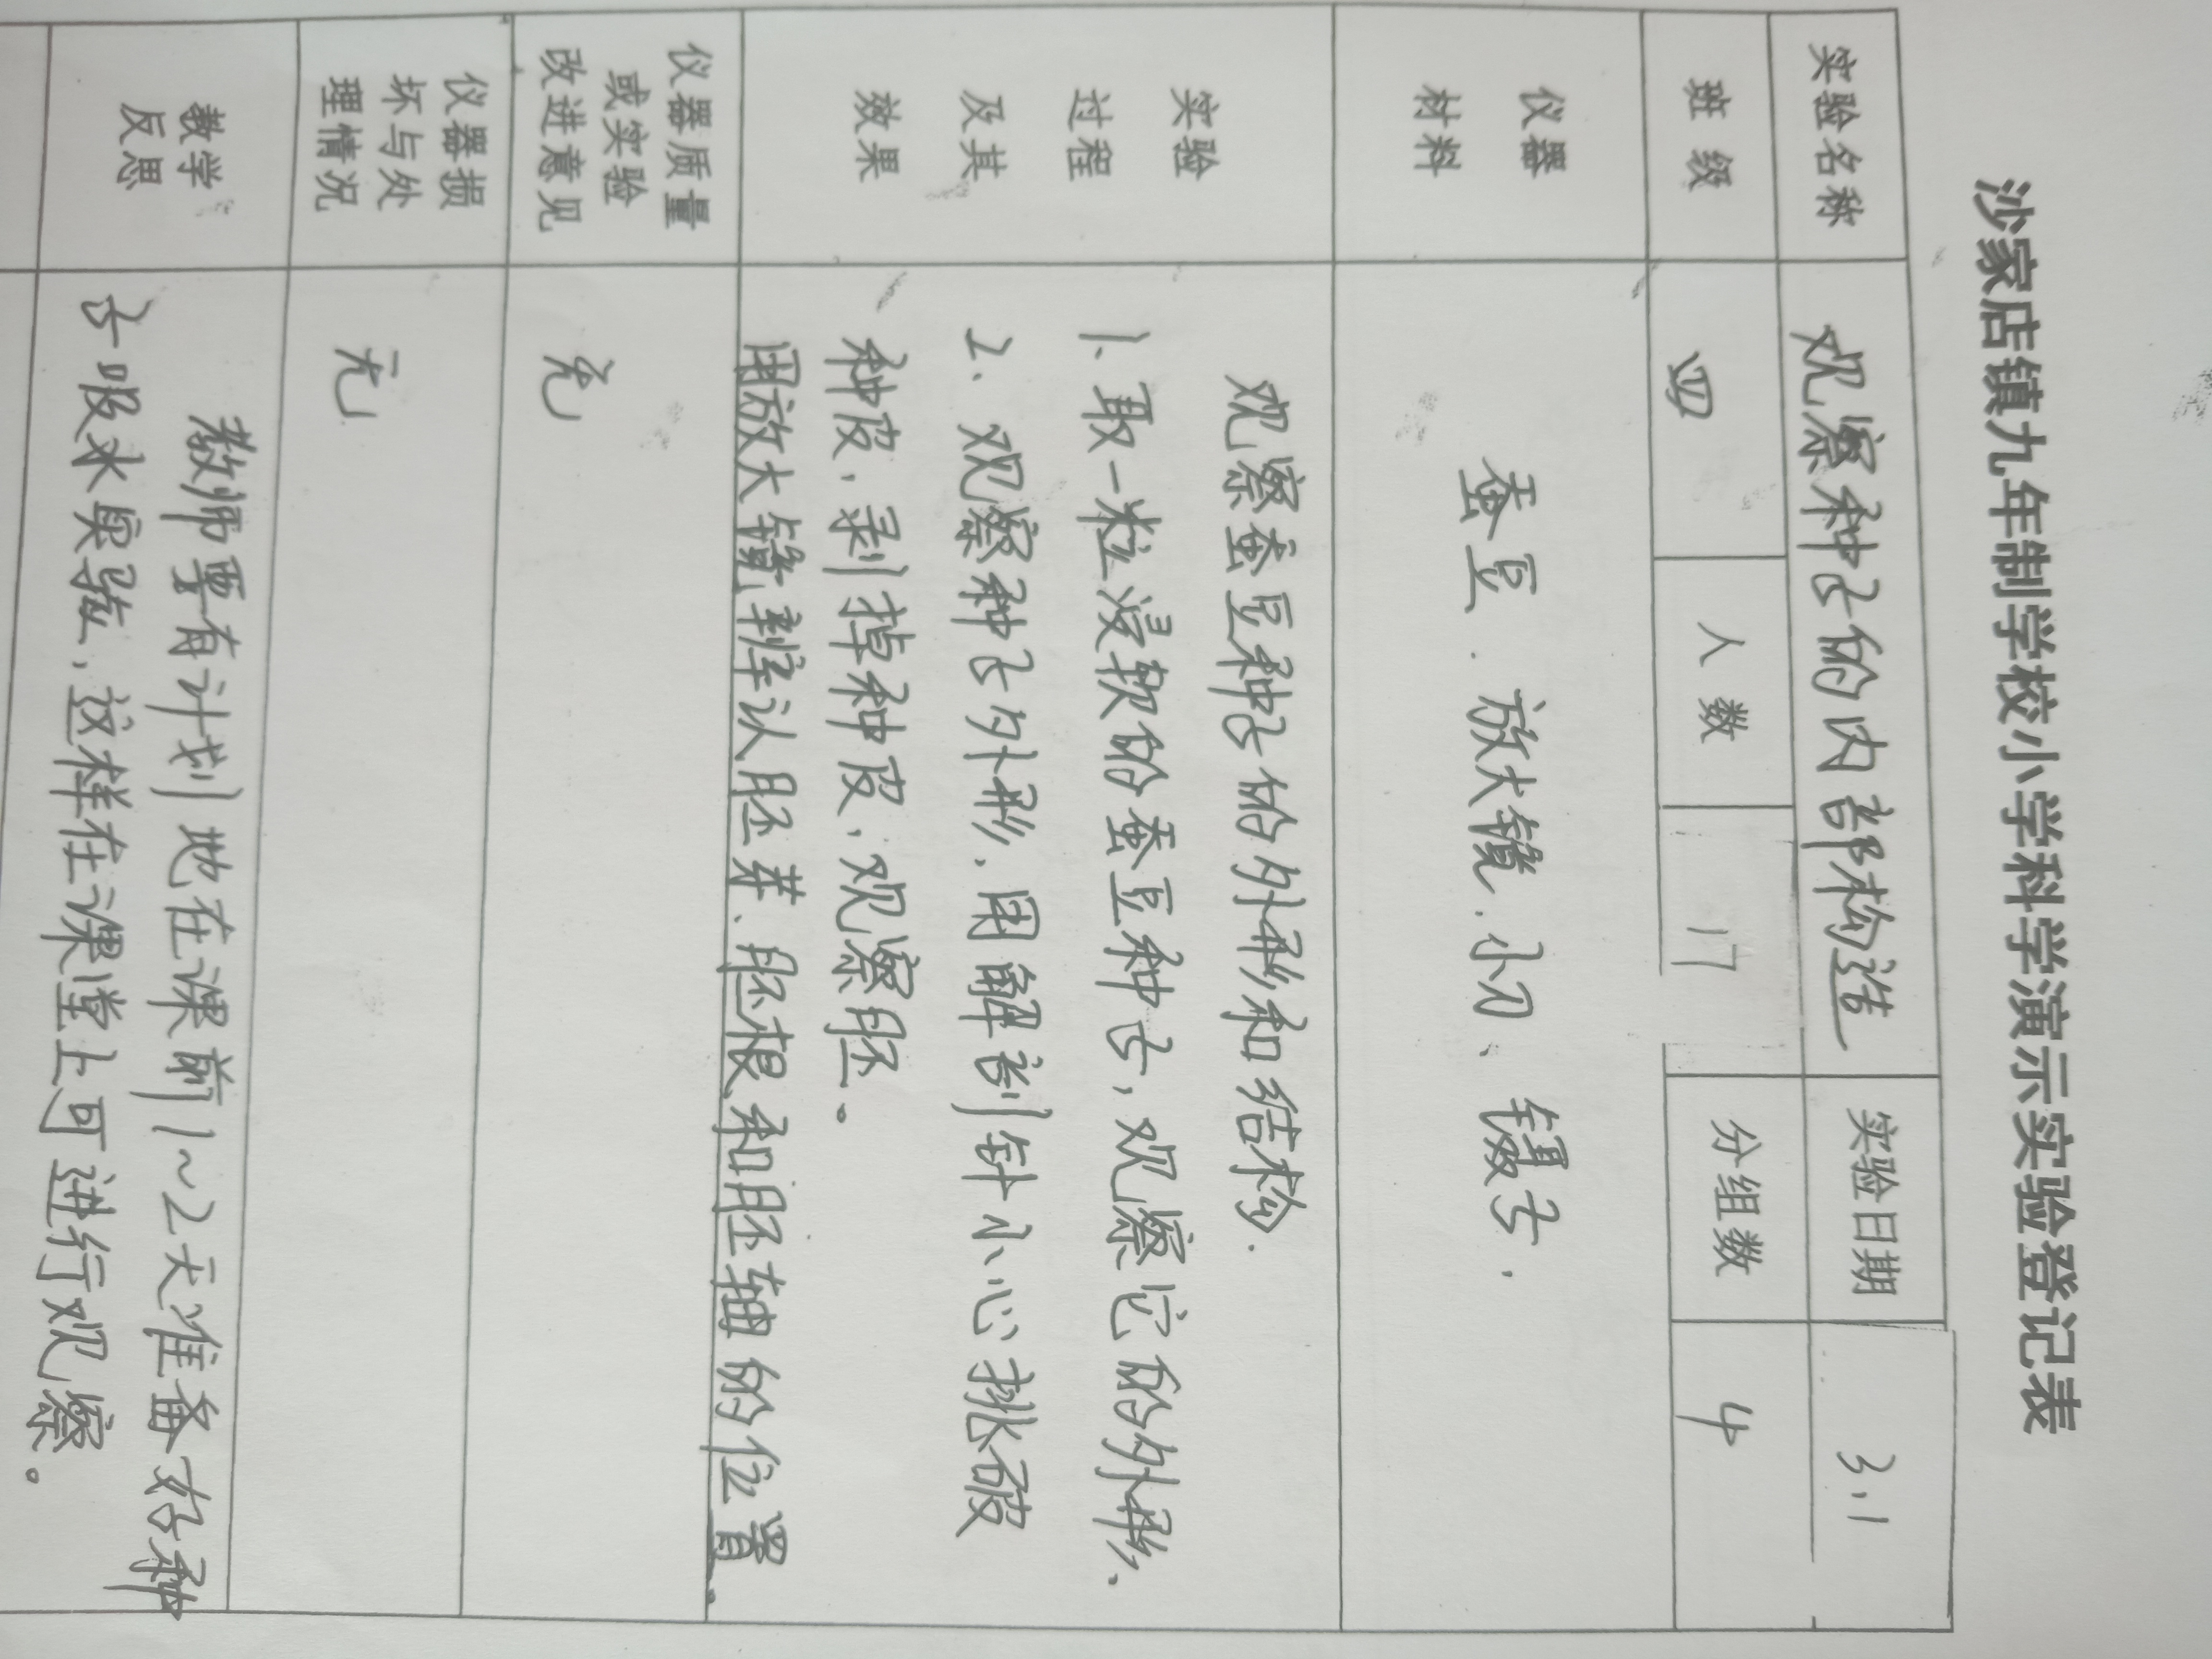 沙家店镇九年制学校小学科学演示实验登记表
实验名称 观察种子的内部构造 实验日期 3.1
班级 四 人数 17 分组数 4
仪器
材料
蚕豆、放大镜、小刀、镊子.
实验
过程
及其
效果
观察蚕豆种子的外形和结构.
1、取一粒浸软的蚕豆种子,观察它的外形、
2、观察种子外形,用解剖针小心挑破
种皮,剥掉种皮,观察胚。
用放大镜辨认胚芽、胚根和胚轴的位置.
仪器质量
或实验
改进意见
无
仪器损
坏与处
理情况
无
教学
反思
教师要有计划地在课前1~2天准备好种
子吸水实验,这样在课堂上可进行观察。